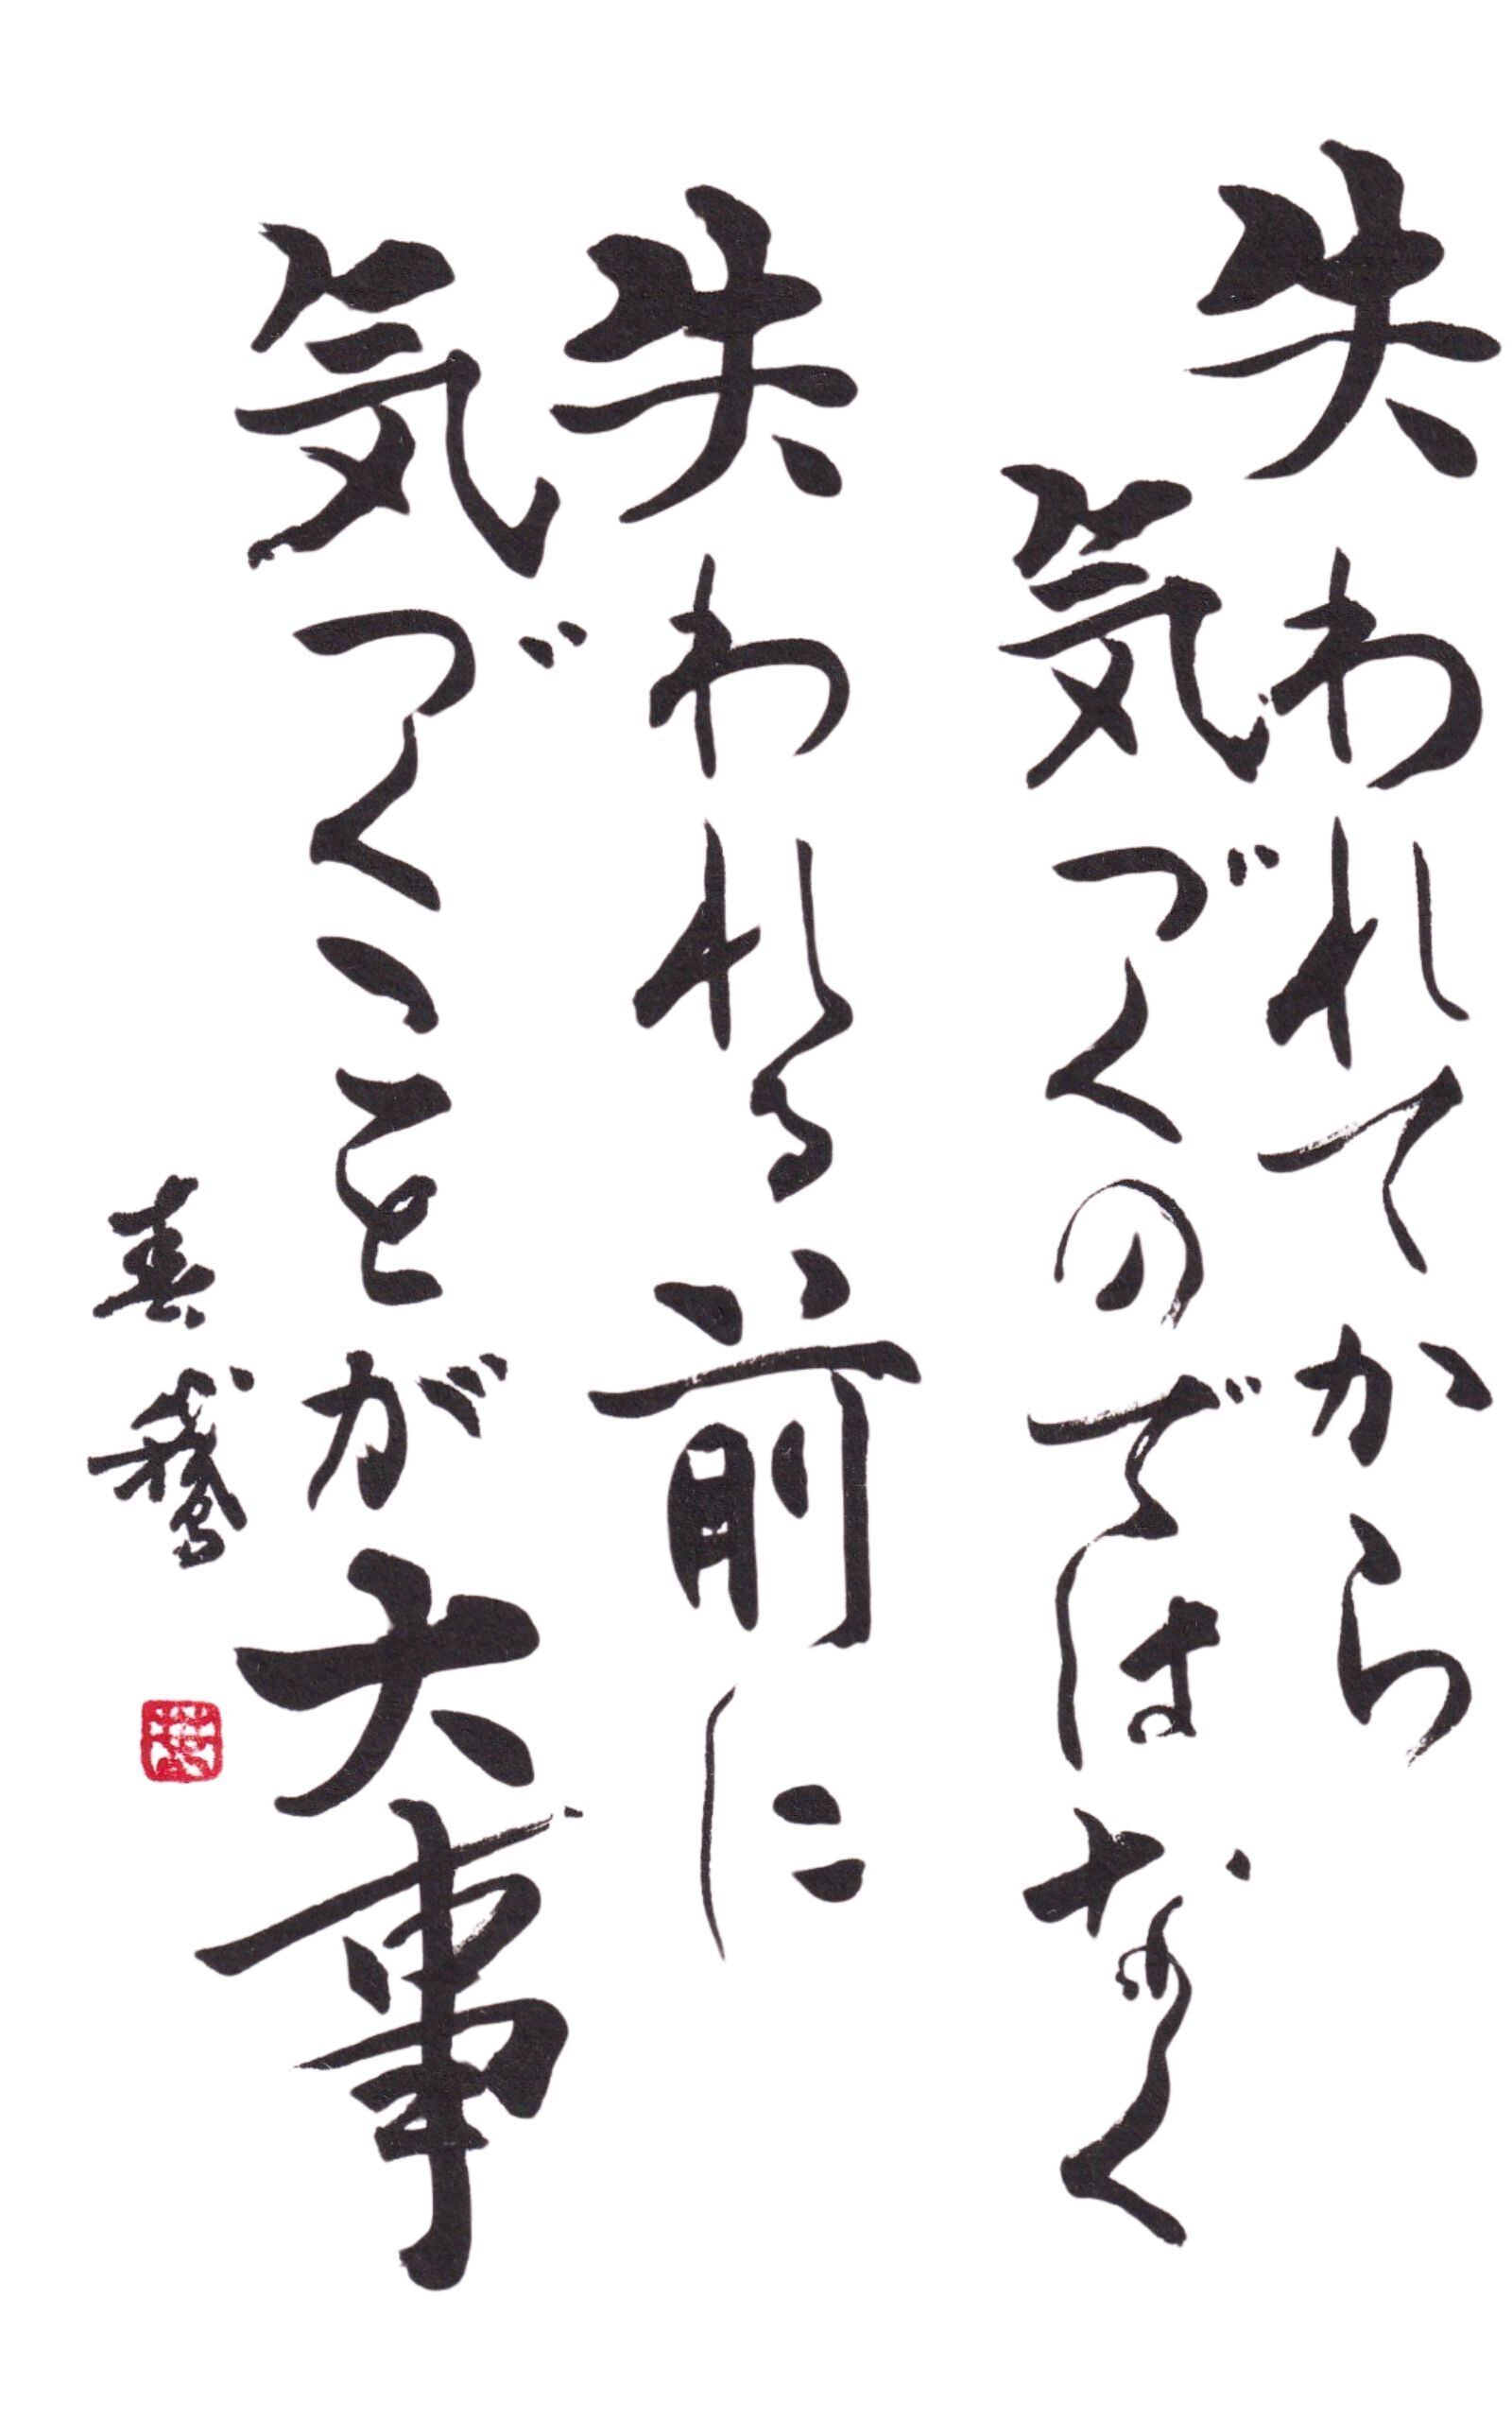 失われてから
気づくのではなく
失われる前に
気づくことが大事
春鵞